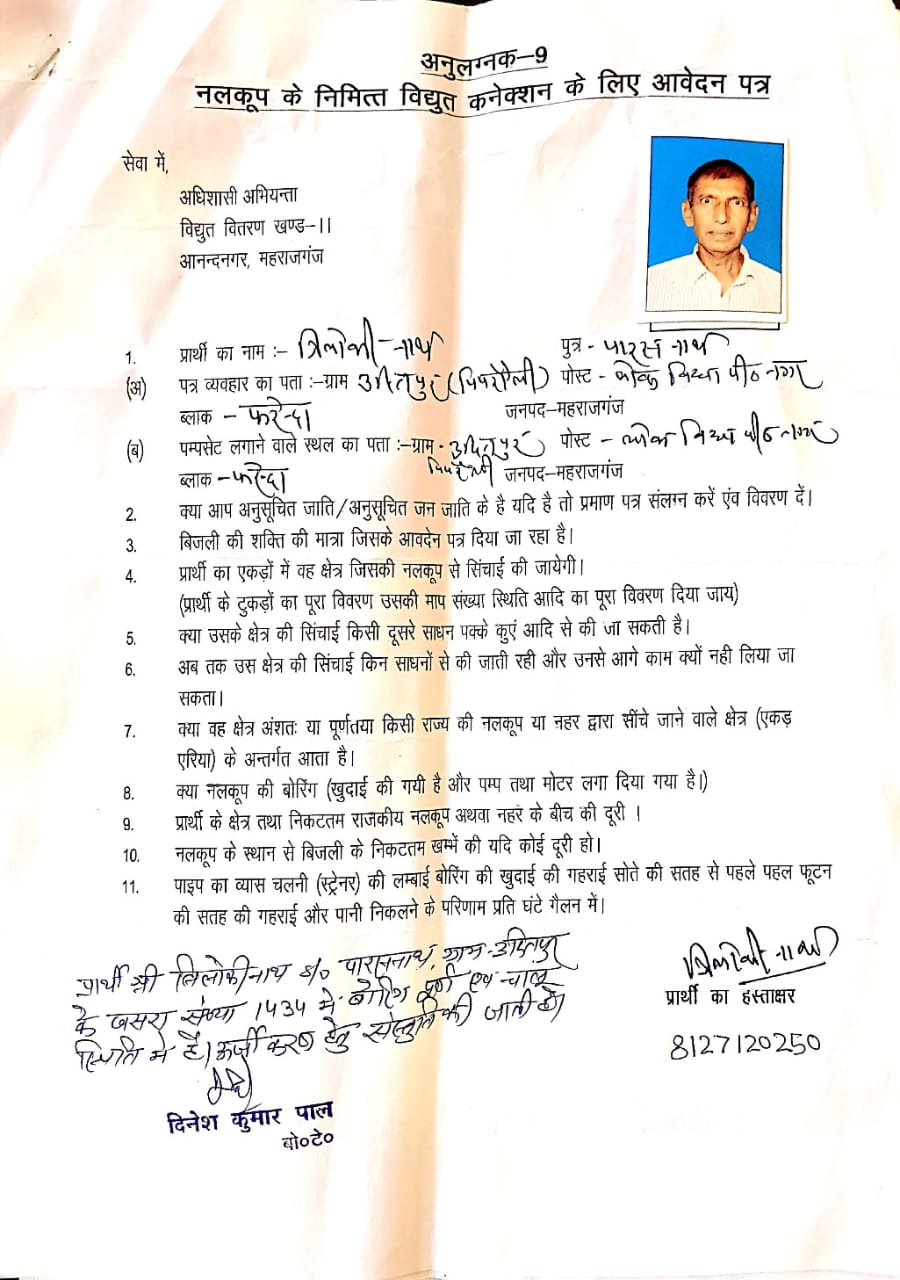 अनुलग्नक-9
नलकूप के निमित्त विद्युत कनेक्शन के लिए आवेदन पत्र
सेवा में,
अधिशासी अभियन्ता
विद्युत वितरण खण्ड-II
आनन्दनगर, महराजगंज
1. प्रार्थी का नाम :- त्रिलोकी नाथ पुत्र - पारस नाथ
(अ) पत्र व्यवहार का पता :-ग्राम उदितपुर (पिपरौली) पोस्ट - लोक विद्या पीठ नगर
ब्लाक - फरेन्दा जनपद-महराजगंज
(ब) पम्पसेट लगाने वाले स्थल का पता :-ग्राम - उदितपुर पोस्ट - लोक विद्या पीठ नगर
ब्लाक - फरेन्दा जनपद-महराजगंज
2. क्या आप अनुसूचित जाति/अनुसूचित जन जाति के है यदि है तो प्रमाण पत्र संलग्न करें एंव विवरण दें।
3. बिजली की शक्ति की मात्रा जिसके आवदेन पत्र दिया जा रहा है।
4. प्रार्थी का एकड़ों में वह क्षेत्र जिसकी नलकूप से सिंचाई की जायेगी।
(प्रार्थी के टुकड़ों का पूरा विवरण उसकी माप संख्या स्थिति आदि का पूरा विवरण दिया जाय)
5. क्या उसके क्षेत्र की सिंचाई किसी दूसरे साधन पक्के कुएं आदि से की जा सकती है।
6. अब तक उस क्षेत्र की सिंचाई किन साधनों से की जाती रही और उनसे आगे काम क्यों नही लिया जा
सकता।
7. क्या वह क्षेत्र अंशतः या पूर्णतया किसी राज्य की नलकूप या नहर द्वारा सींचे जाने वाले क्षेत्र (एकड़
एरिया) के अन्तर्गत आता है।
8. क्या नलकूप की बोरिंग (खुदाई की गयी है और पम्प तथा मोटर लगा दिया गया है।)
9. प्रार्थी के क्षेत्र तथा निकटतम राजकीय नलकूप अथवा नहर के बीच की दूरी ।
10. नलकूप के स्थान से बिजली के निकटतम खम्भें की यदि कोई दूरी हो।
11. पाइप का व्यास चलनी (स्ट्रेनर) की लम्बाई बोरिंग की खुदाई की गहराई सोते की सतह से पहले पहल फूटन
की सतह की गहराई और पानी निकलने के परिणाम प्रति घंटे गैलन में।
प्रार्थी श्री त्रिलोकीनाथ S/o पारसनाथ, ग्राम-उदितपुर
के खसरा संख्या 1434 में बोरिंग पूर्ण एवं चालू
स्थिति में है। ऊर्जीकरण हेतु संस्तुति की जाती है।
त्रिलोकी नाथ
प्रार्थी का हस्ताक्षर
8127120250
दिनेश कुमार पाल
बो०टे०